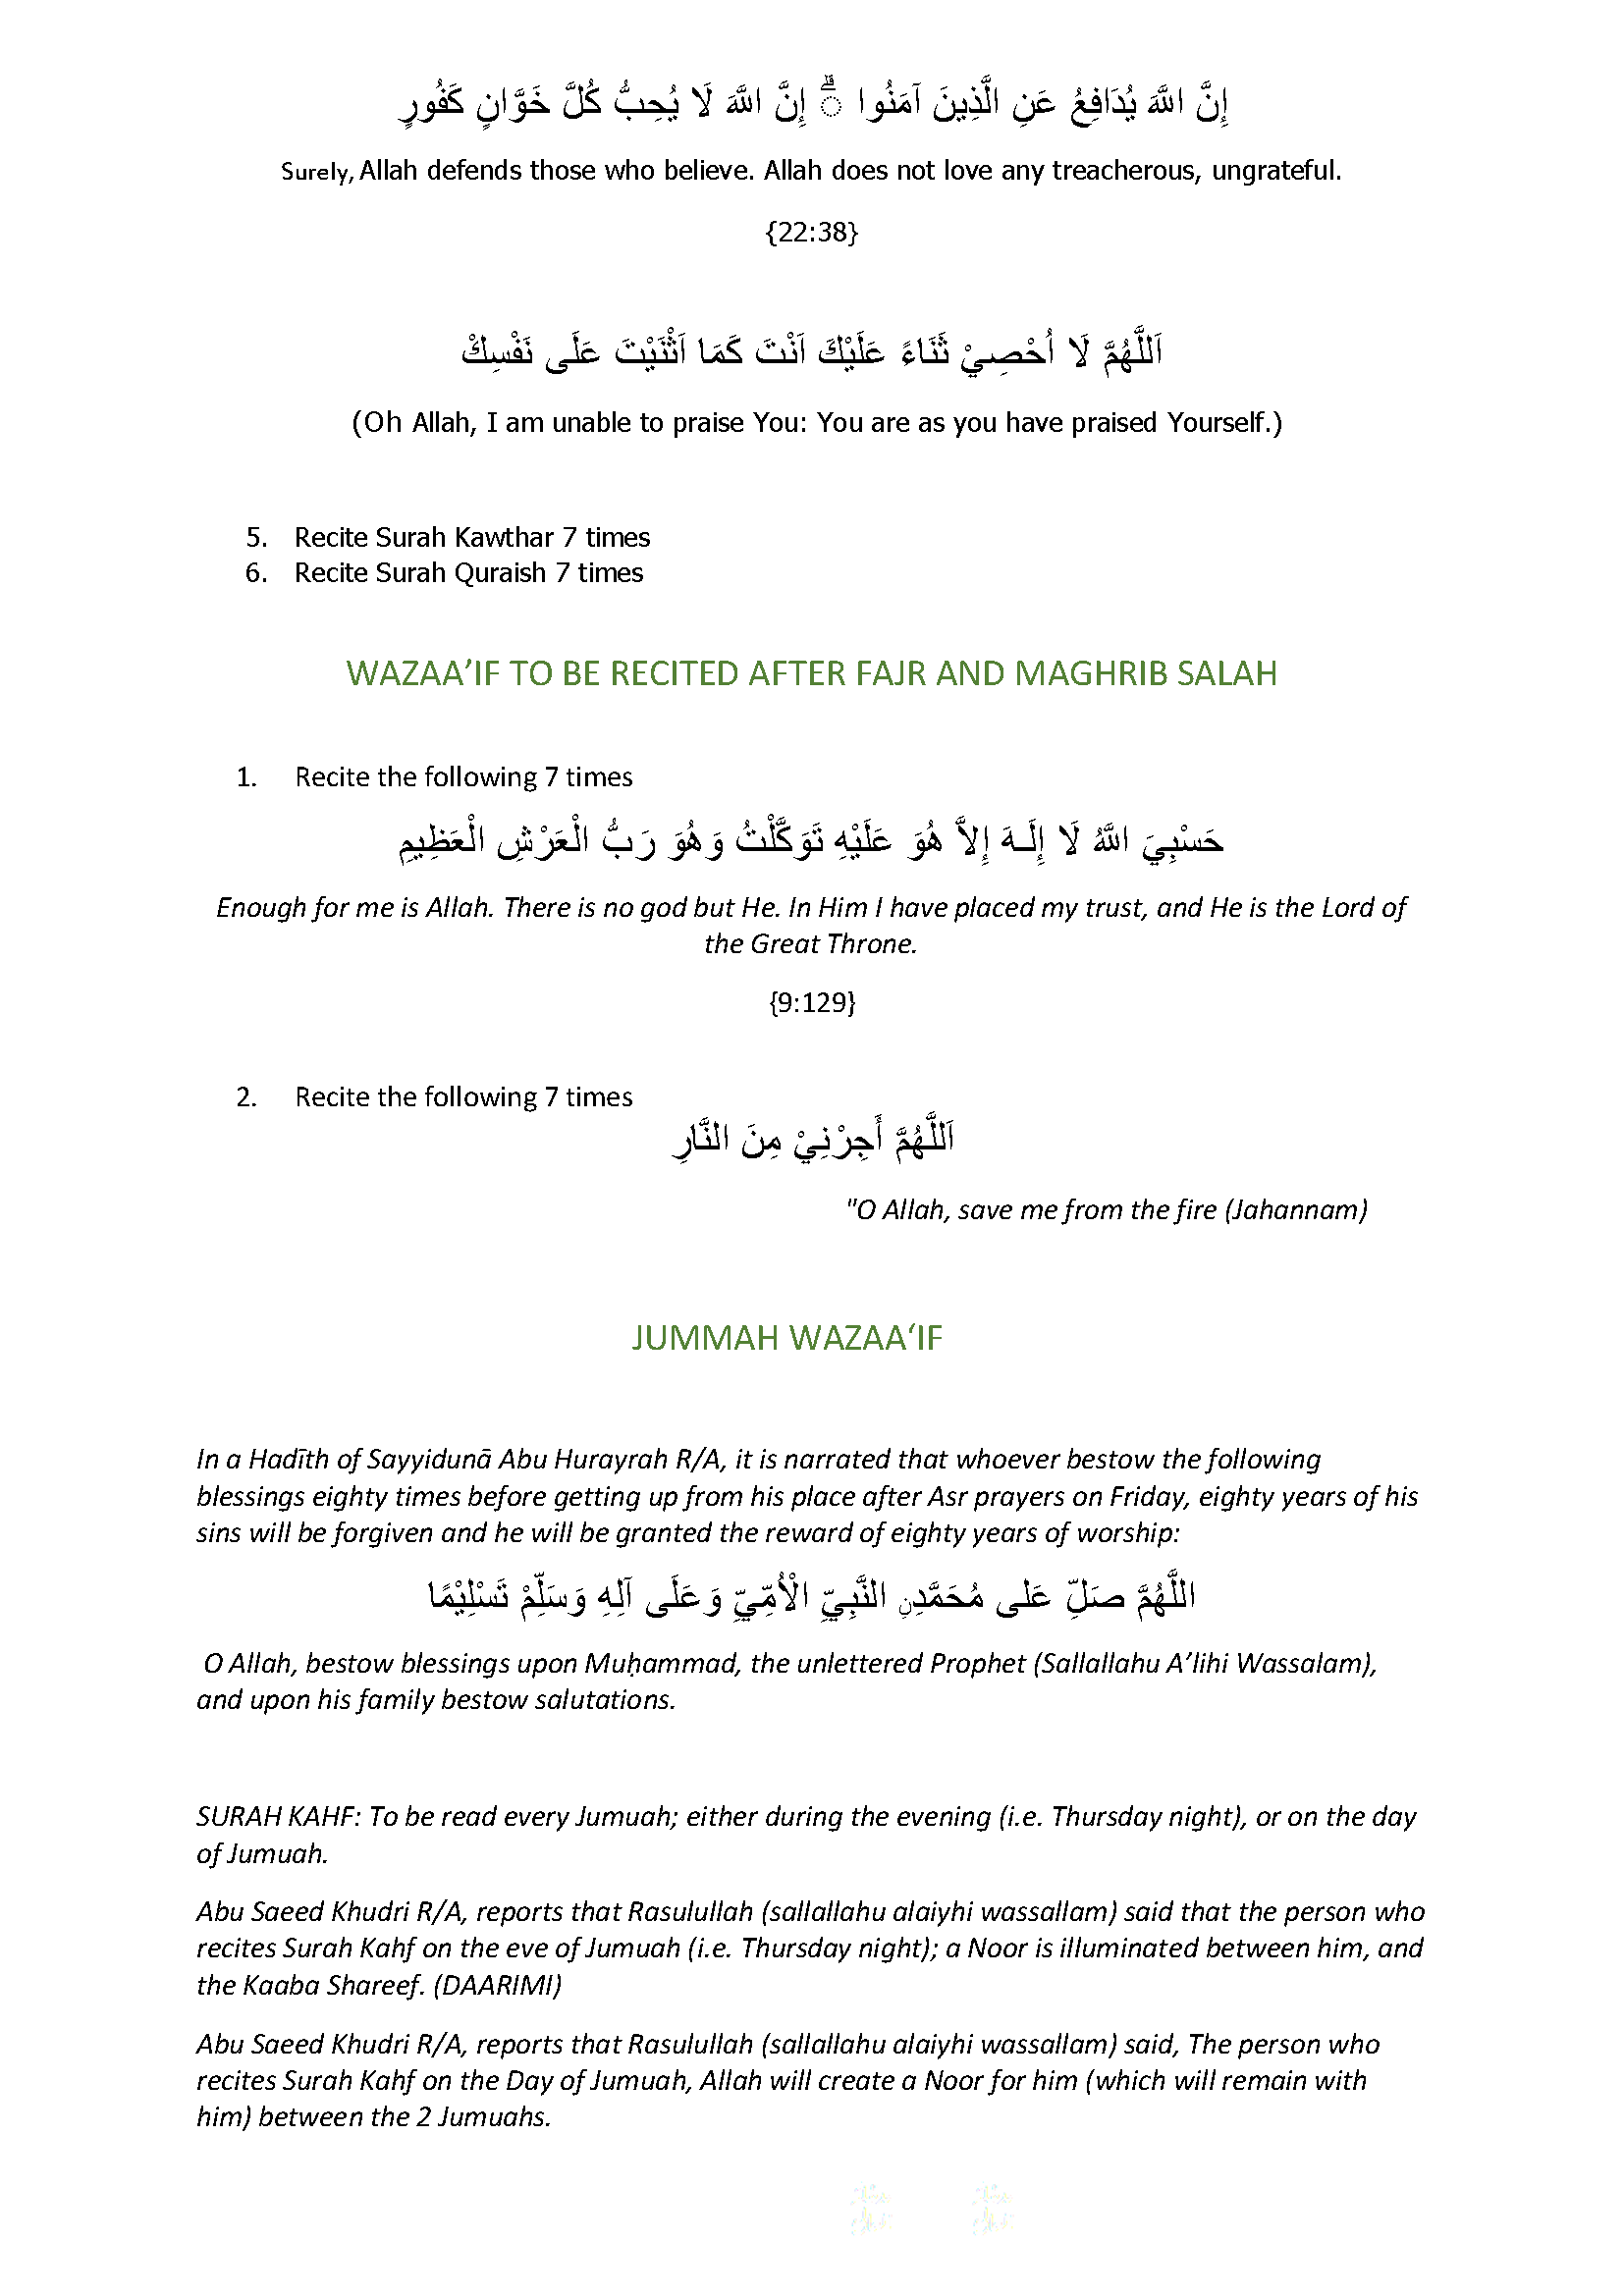 إِنَّ اللَّهَ يُدَافِعُ عَنِ الَّذِينَ آمَنُوا ۗ إِنَّ اللَّهَ لَا يُحِبُّ كُلَّ خَوَّانٍ كَفُورٍ
Surely, Allah defends those who believe. Allah does not love any treacherous, ungrateful.
{22:38}
اَللَّهُمَّ لَا أُحْصِيْ ثَنَاءً عَلَيْكَ اَنْتَ كَمَا اَثْنَيْتَ عَلَى نَفْسِكْ
(Oh Allah, I am unable to praise You: You are as you have praised Yourself.)
5. Recite Surah Kawthar 7 times
6. Recite Surah Quraish 7 times
WAZAA’IF TO BE RECITED AFTER FAJR AND MAGHRIB SALAH
1. Recite the following 7 times
حَسْبِيَ اللَّهُ لَا إِلَـهَ إِلاَّ هُوَ عَلَيْهِ تَوَكَّلْتُ وَهُوَ رَبُّ الْعَرْشِ الْعَظِيمِ
Enough for me is Allah. There is no god but He. In Him I have placed my trust, and He is the Lord of
the Great Throne.
{9:129}
2. Recite the following 7 times
اَللَّهُمَّ أَجِرْنِيْ مِنَ النَّارِ
"O Allah, save me from the fire (Jahannam)
JUMMAH WAZAA‘IF
In a Hadīth of Sayyidunā Abu Hurayrah R/A, it is narrated that whoever bestow the following
blessings eighty times before getting up from his place after Asr prayers on Friday, eighty years of his
sins will be forgiven and he will be granted the reward of eighty years of worship:
اللَّهُمَّ صَلِّ عَلى مُحَمَّدِنِ النَّبِيِّ الْأُمِّيِّ وَعَلَى آلِهِ وَسَلِّمْ تَسْلِيْمًا
O Allah, bestow blessings upon Muḥammad, the unlettered Prophet (Sallallahu A’lihi Wassalam),
and upon his family bestow salutations.
SURAH KAHF: To be read every Jumuah; either during the evening (i.e. Thursday night), or on the day
of Jumuah.
Abu Saeed Khudri R/A, reports that Rasulullah (sallallahu alaiyhi wassallam) said that the person who
recites Surah Kahf on the eve of Jumuah (i.e. Thursday night); a Noor is illuminated between him, and
the Kaaba Shareef. (DAARIMI)
Abu Saeed Khudri R/A, reports that Rasulullah (sallallahu alaiyhi wassallam) said, The person who
recites Surah Kahf on the Day of Jumuah, Allah will create a Noor for him (which will remain with
him) between the 2 Jumuahs.